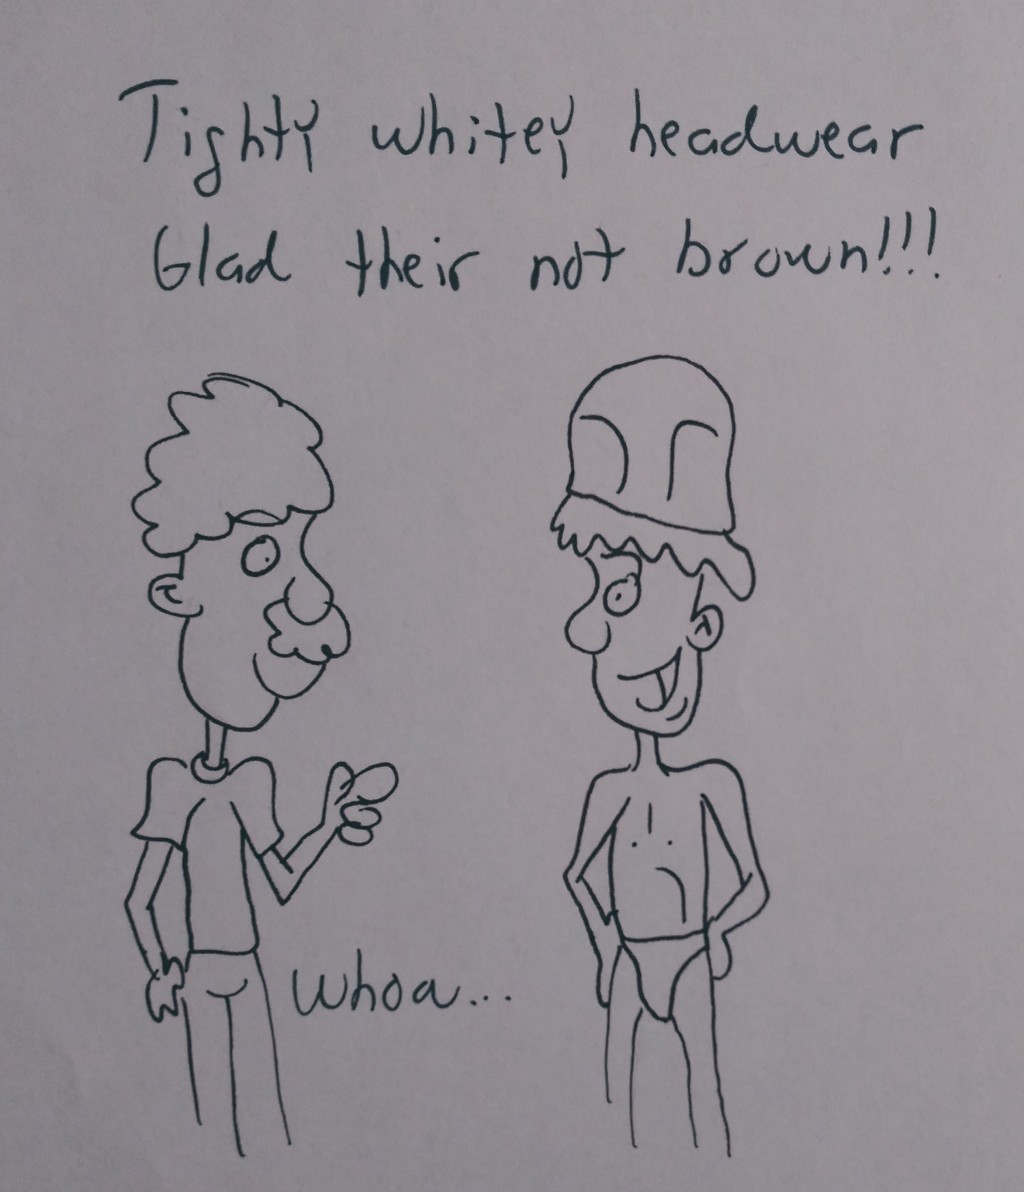 Tighty whitey headwear
Glad their not brown!!!
Whoa...